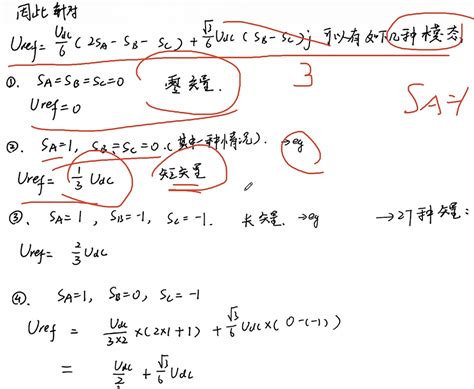 因此 针对
Uref = Udc/6 (2SA - SB - SC) + √3/6 Udc (SB - SC) j 可以有如下几种模态
①. SA = SB = SC = 0 零矢量. 3
Uref = 0 SA=1
②. SA = 1, SB = SC = 0. (其中一种情况). → eg
Uref = 1/3 Udc 短矢量
③. SA = 1, SB = -1, SC = -1. 长矢量. → eg → 27种矢量:
Uref = 2/3 Udc
④. SA = 1, SB = 0, SC = -1
Uref = Udc/3×2 × (2×1+1) + √3/6 Udc × (0-(-1))
= Udc/2 + √3/6 Udc